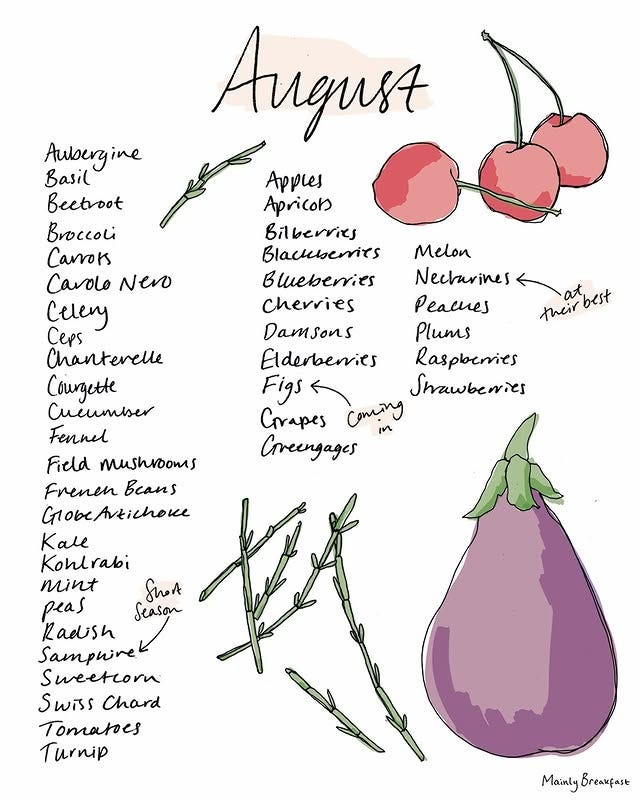 August
Aubergine
Basil
Beetroot
Broccoli
Carrots
Cavolo Nero
Celery
Ceps
Chanterelle
Courgette
Cucumber
Fennel
Field mushrooms
French Beans
Globe Artichoke
Kale
Kohlrabi
Mint
Peas
Radish
Samphire
Sweetcorn
Swiss Chard
Tomatoes
Turnip
Short
Season
Apples
Apricots
Bilberries
Blackberries
Blueberries
Cherries
Damsons
Elderberries
Figs
Grapes
Greengages
Coming
in
Melon
Nectarines
Peaches
Plums
Raspberries
Strawberries
at
their best
Mainly Breakfast